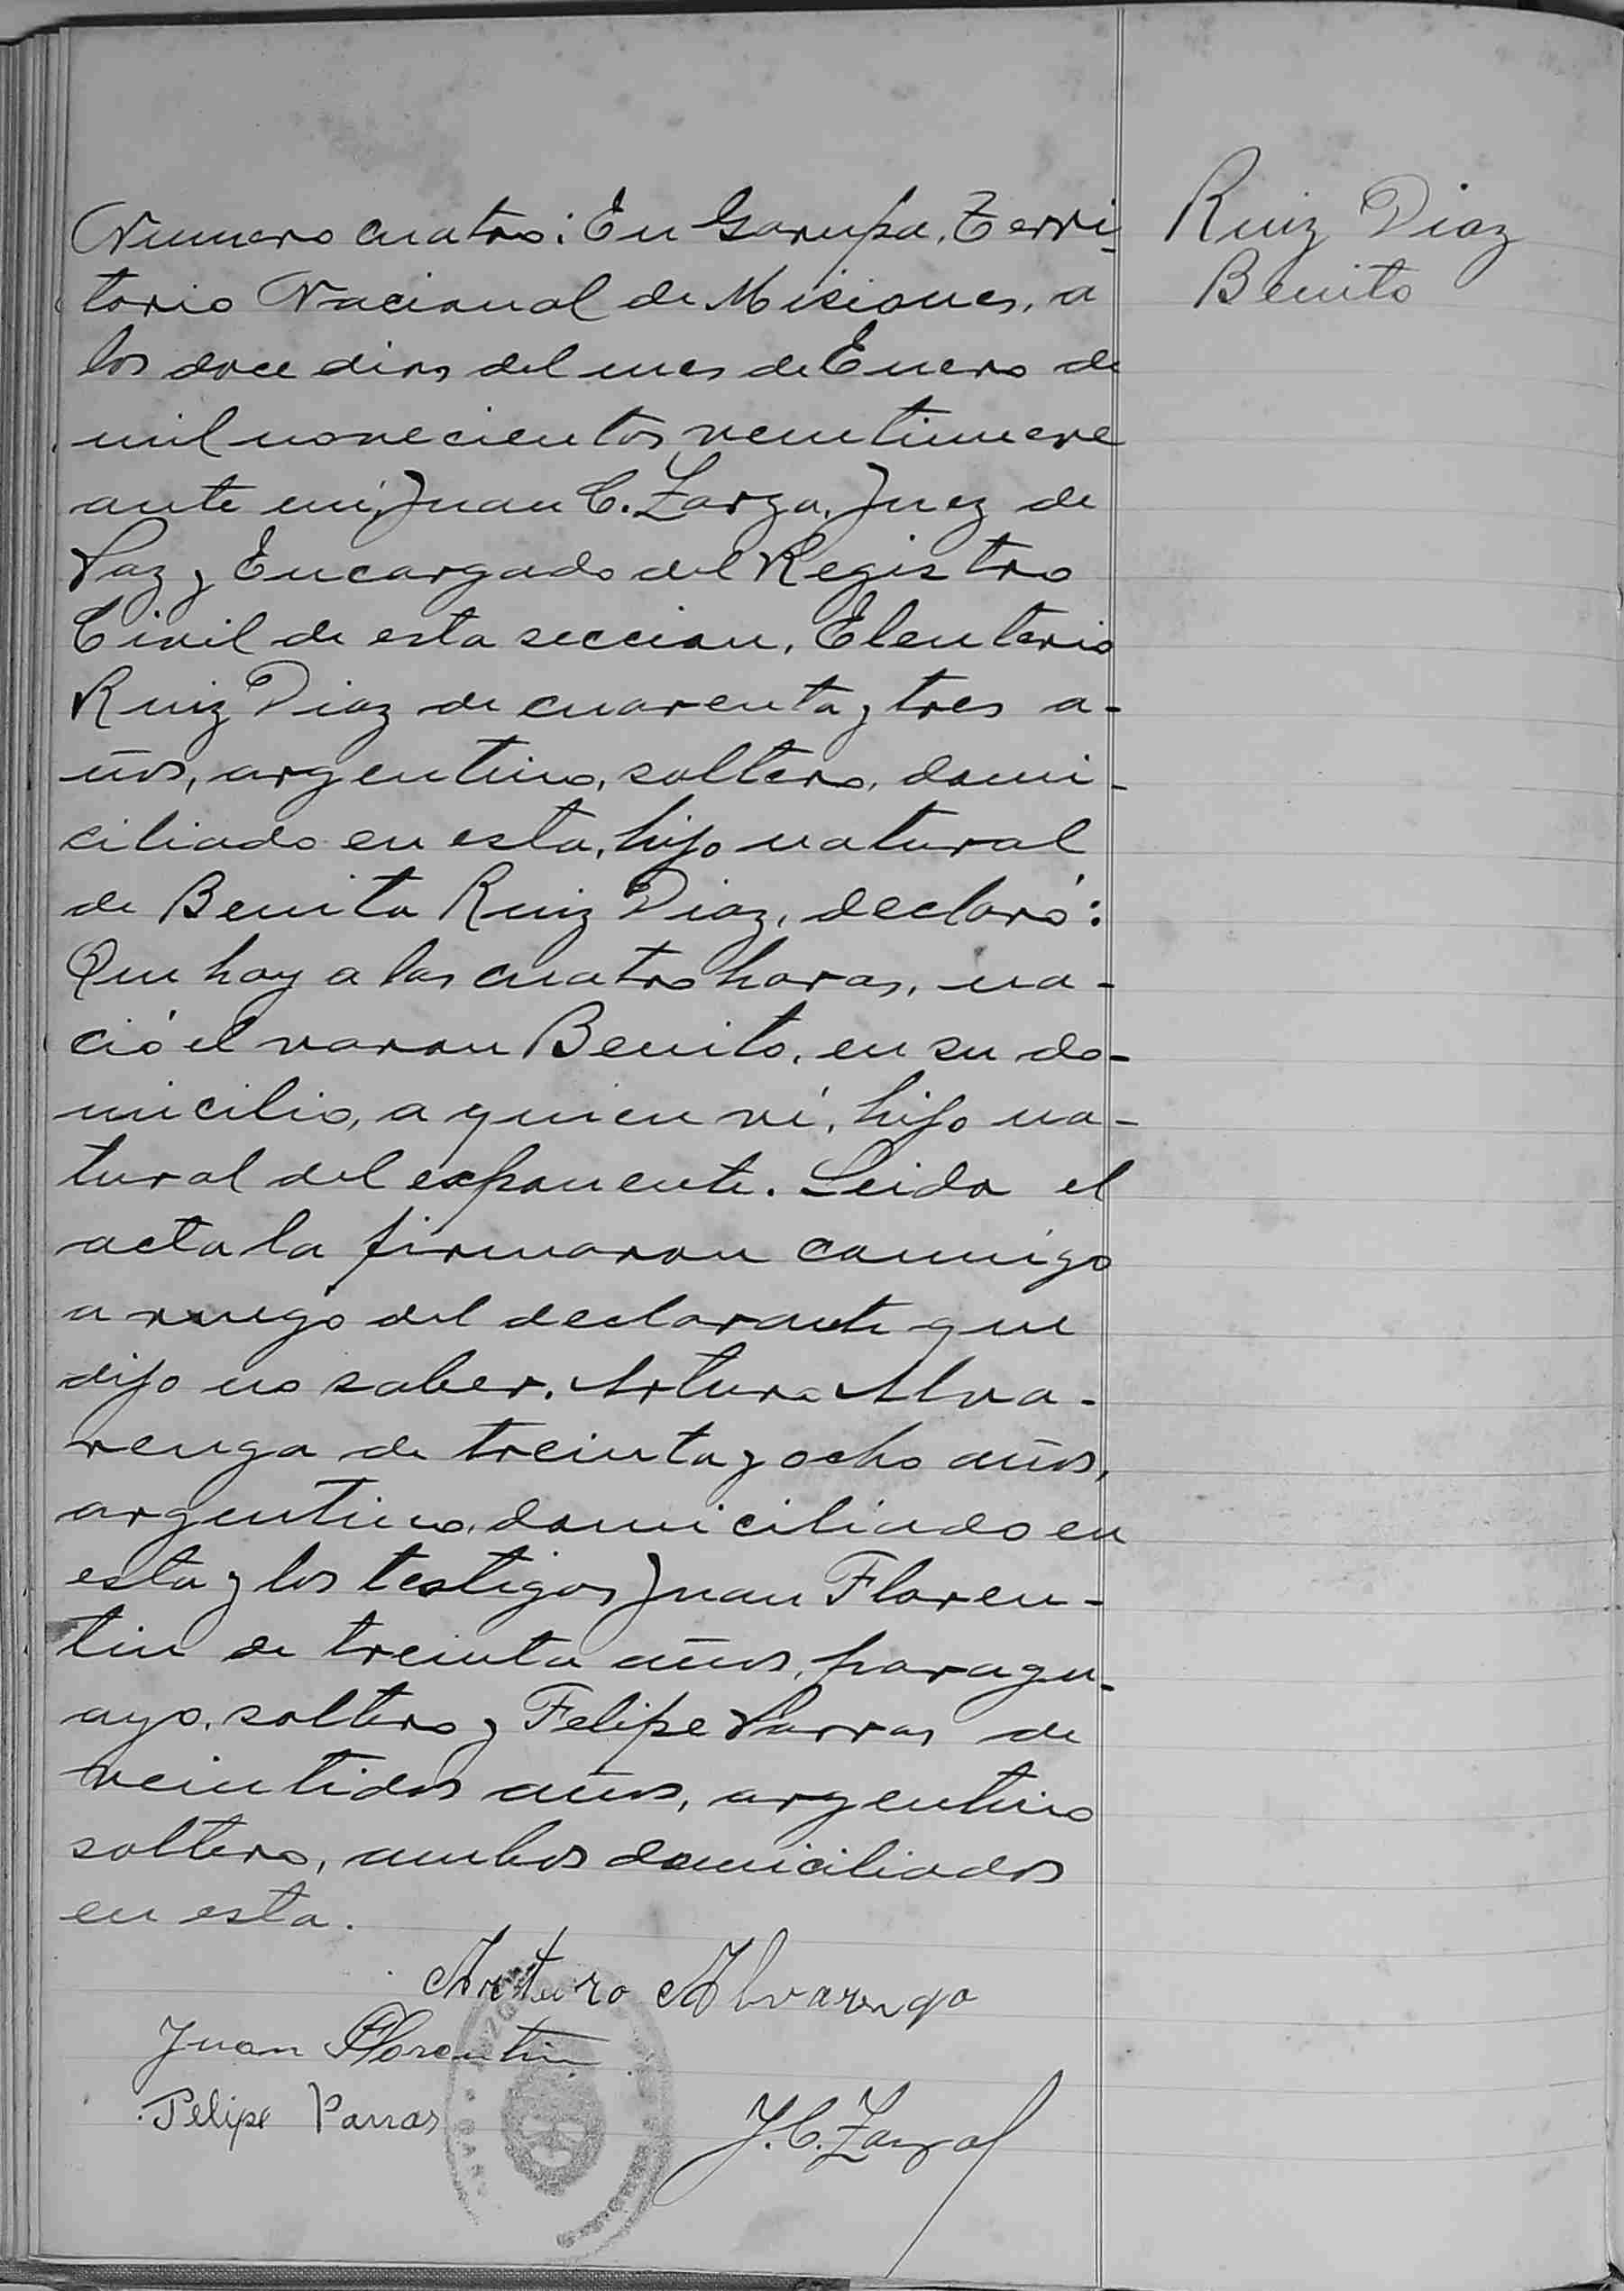 Numero cuatro: En Garupa, Terri-
torio Nacional de Misiones, a
los doce dias del mes de Enero de
mil novecientos veintinueve
ante mi, Juan C. Zarza, Juez de
Paz y Encargado del Registro
Civil de esta seccion, Eleuterio
Ruiz Diaz de cuarenta y tres a-
ños, argentino, soltero, domi-
ciliado en esta, hijo natural
de Benita Ruiz Diaz, declaró:
Que hoy a las cuatro horas, na-
ció el varon Benito, en su do-
micilio, a quien ví, hijo na-
tural del exponente. Leida el
acta la firmaron conmigo
a ruego del declarante que
dijo no saber. Arturo Alva-
renga de treinta y ocho años,
argentino, domiciliado en
esta y los testigos Juan Floren-
tin de treinta años, paragu-
ayo, soltero y Felipe Parras de
veintidos años, argentino
soltero, ambos domiciliados
en esta.
Arturo Alvarenga
Juan Florentin
Felipe Parras
J. C. Zarza
Ruiz Diaz
Benito